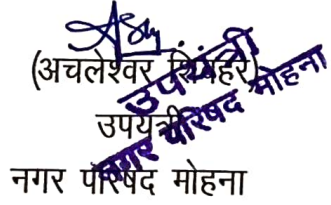 (अचलेश्वर सिंघहरे)
उपयंत्री
नगर परिषद मोहना
उपयंत्री
नगर परिषद मोहना